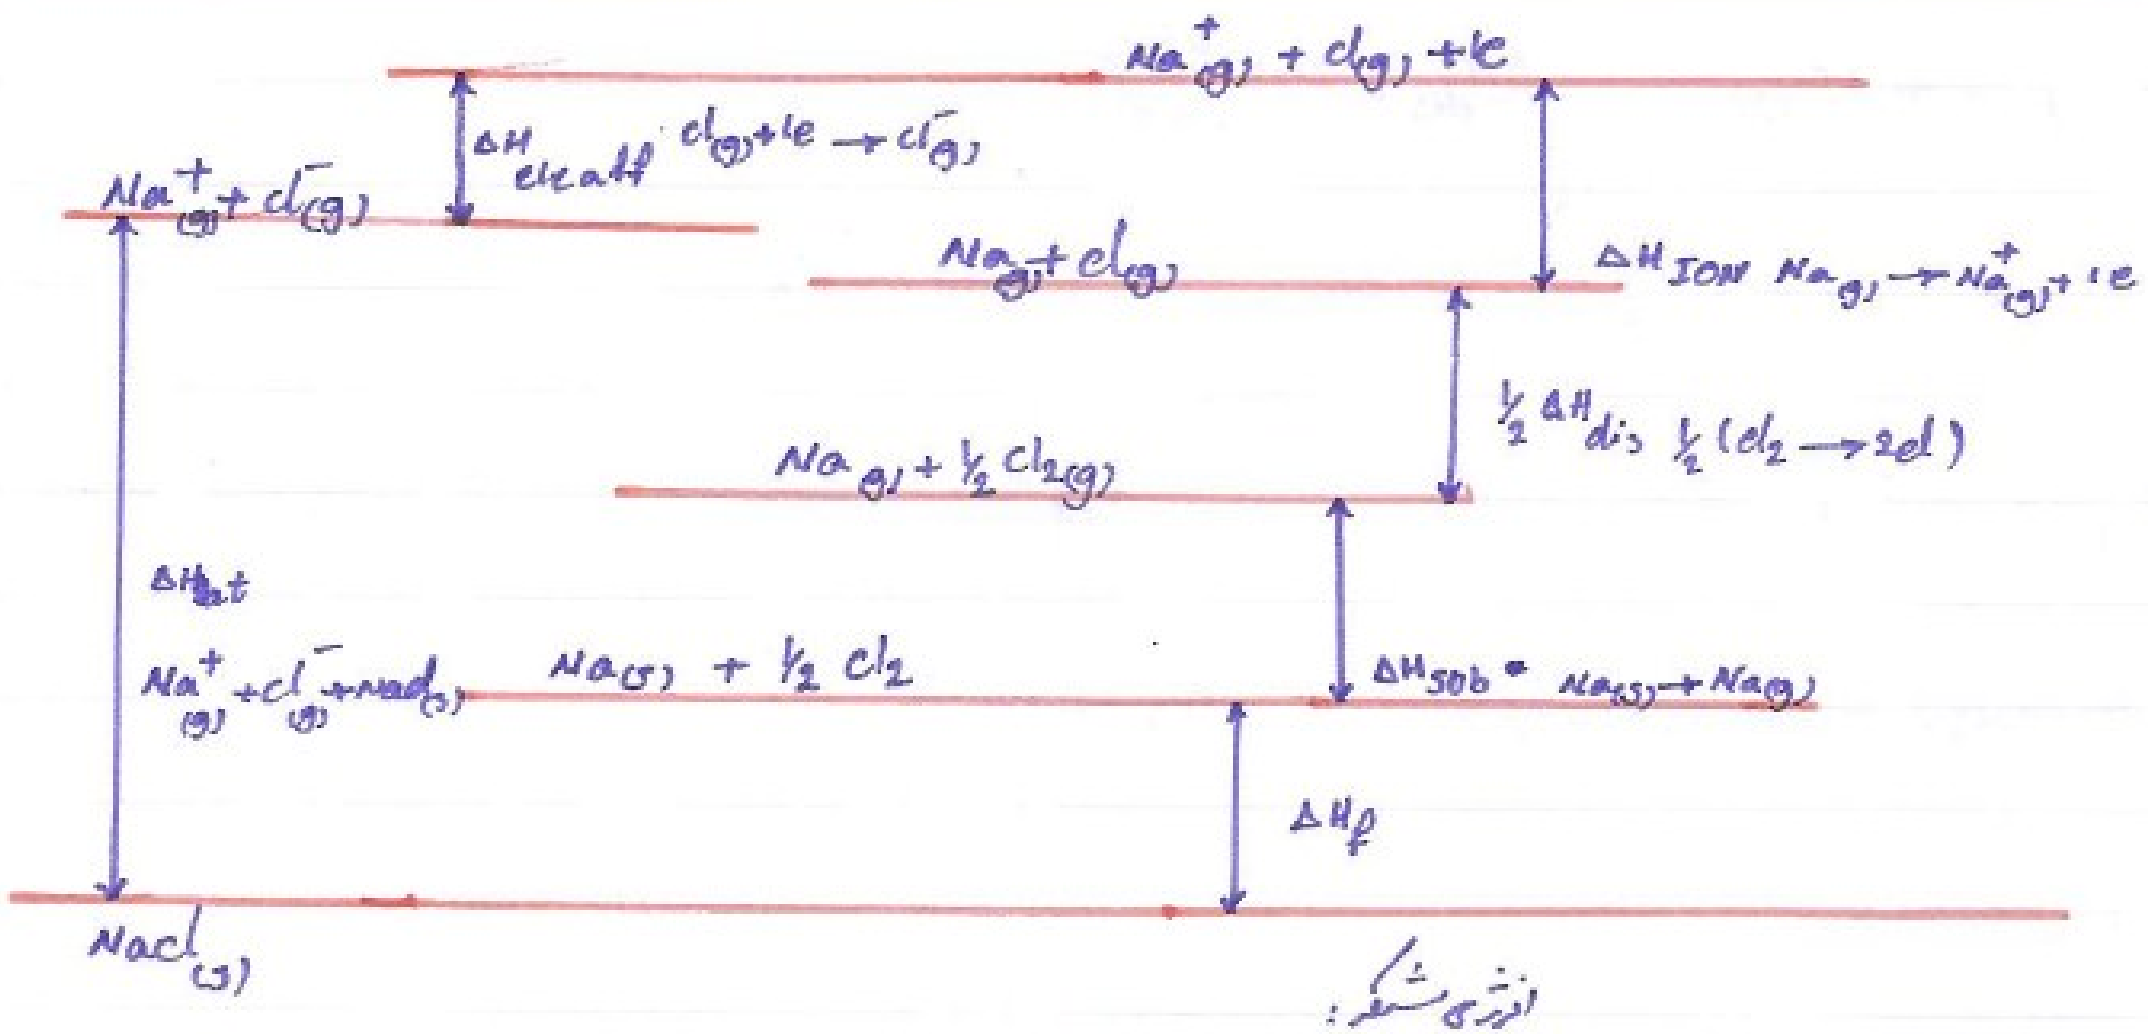 Na⁺(g) + Cl(g) + 1e
ΔH ele aff Cl(g) + 1e → Cl⁻(g)
Na⁺(g) + Cl⁻(g)
Na(g) + Cl(g)
ΔH ION Na(g) → Na⁺(g) + 1e
½ ΔH dis ½ (Cl₂ → 2Cl)
Na(g) + ½ Cl₂(g)
ΔH lat
Na⁺(g) + Cl⁻(g) → NaCl(s)
Na(s) + ½ Cl₂
ΔH sub = Na(s) → Na(g)
ΔHf
NaCl(s)
انرژی شبکه :